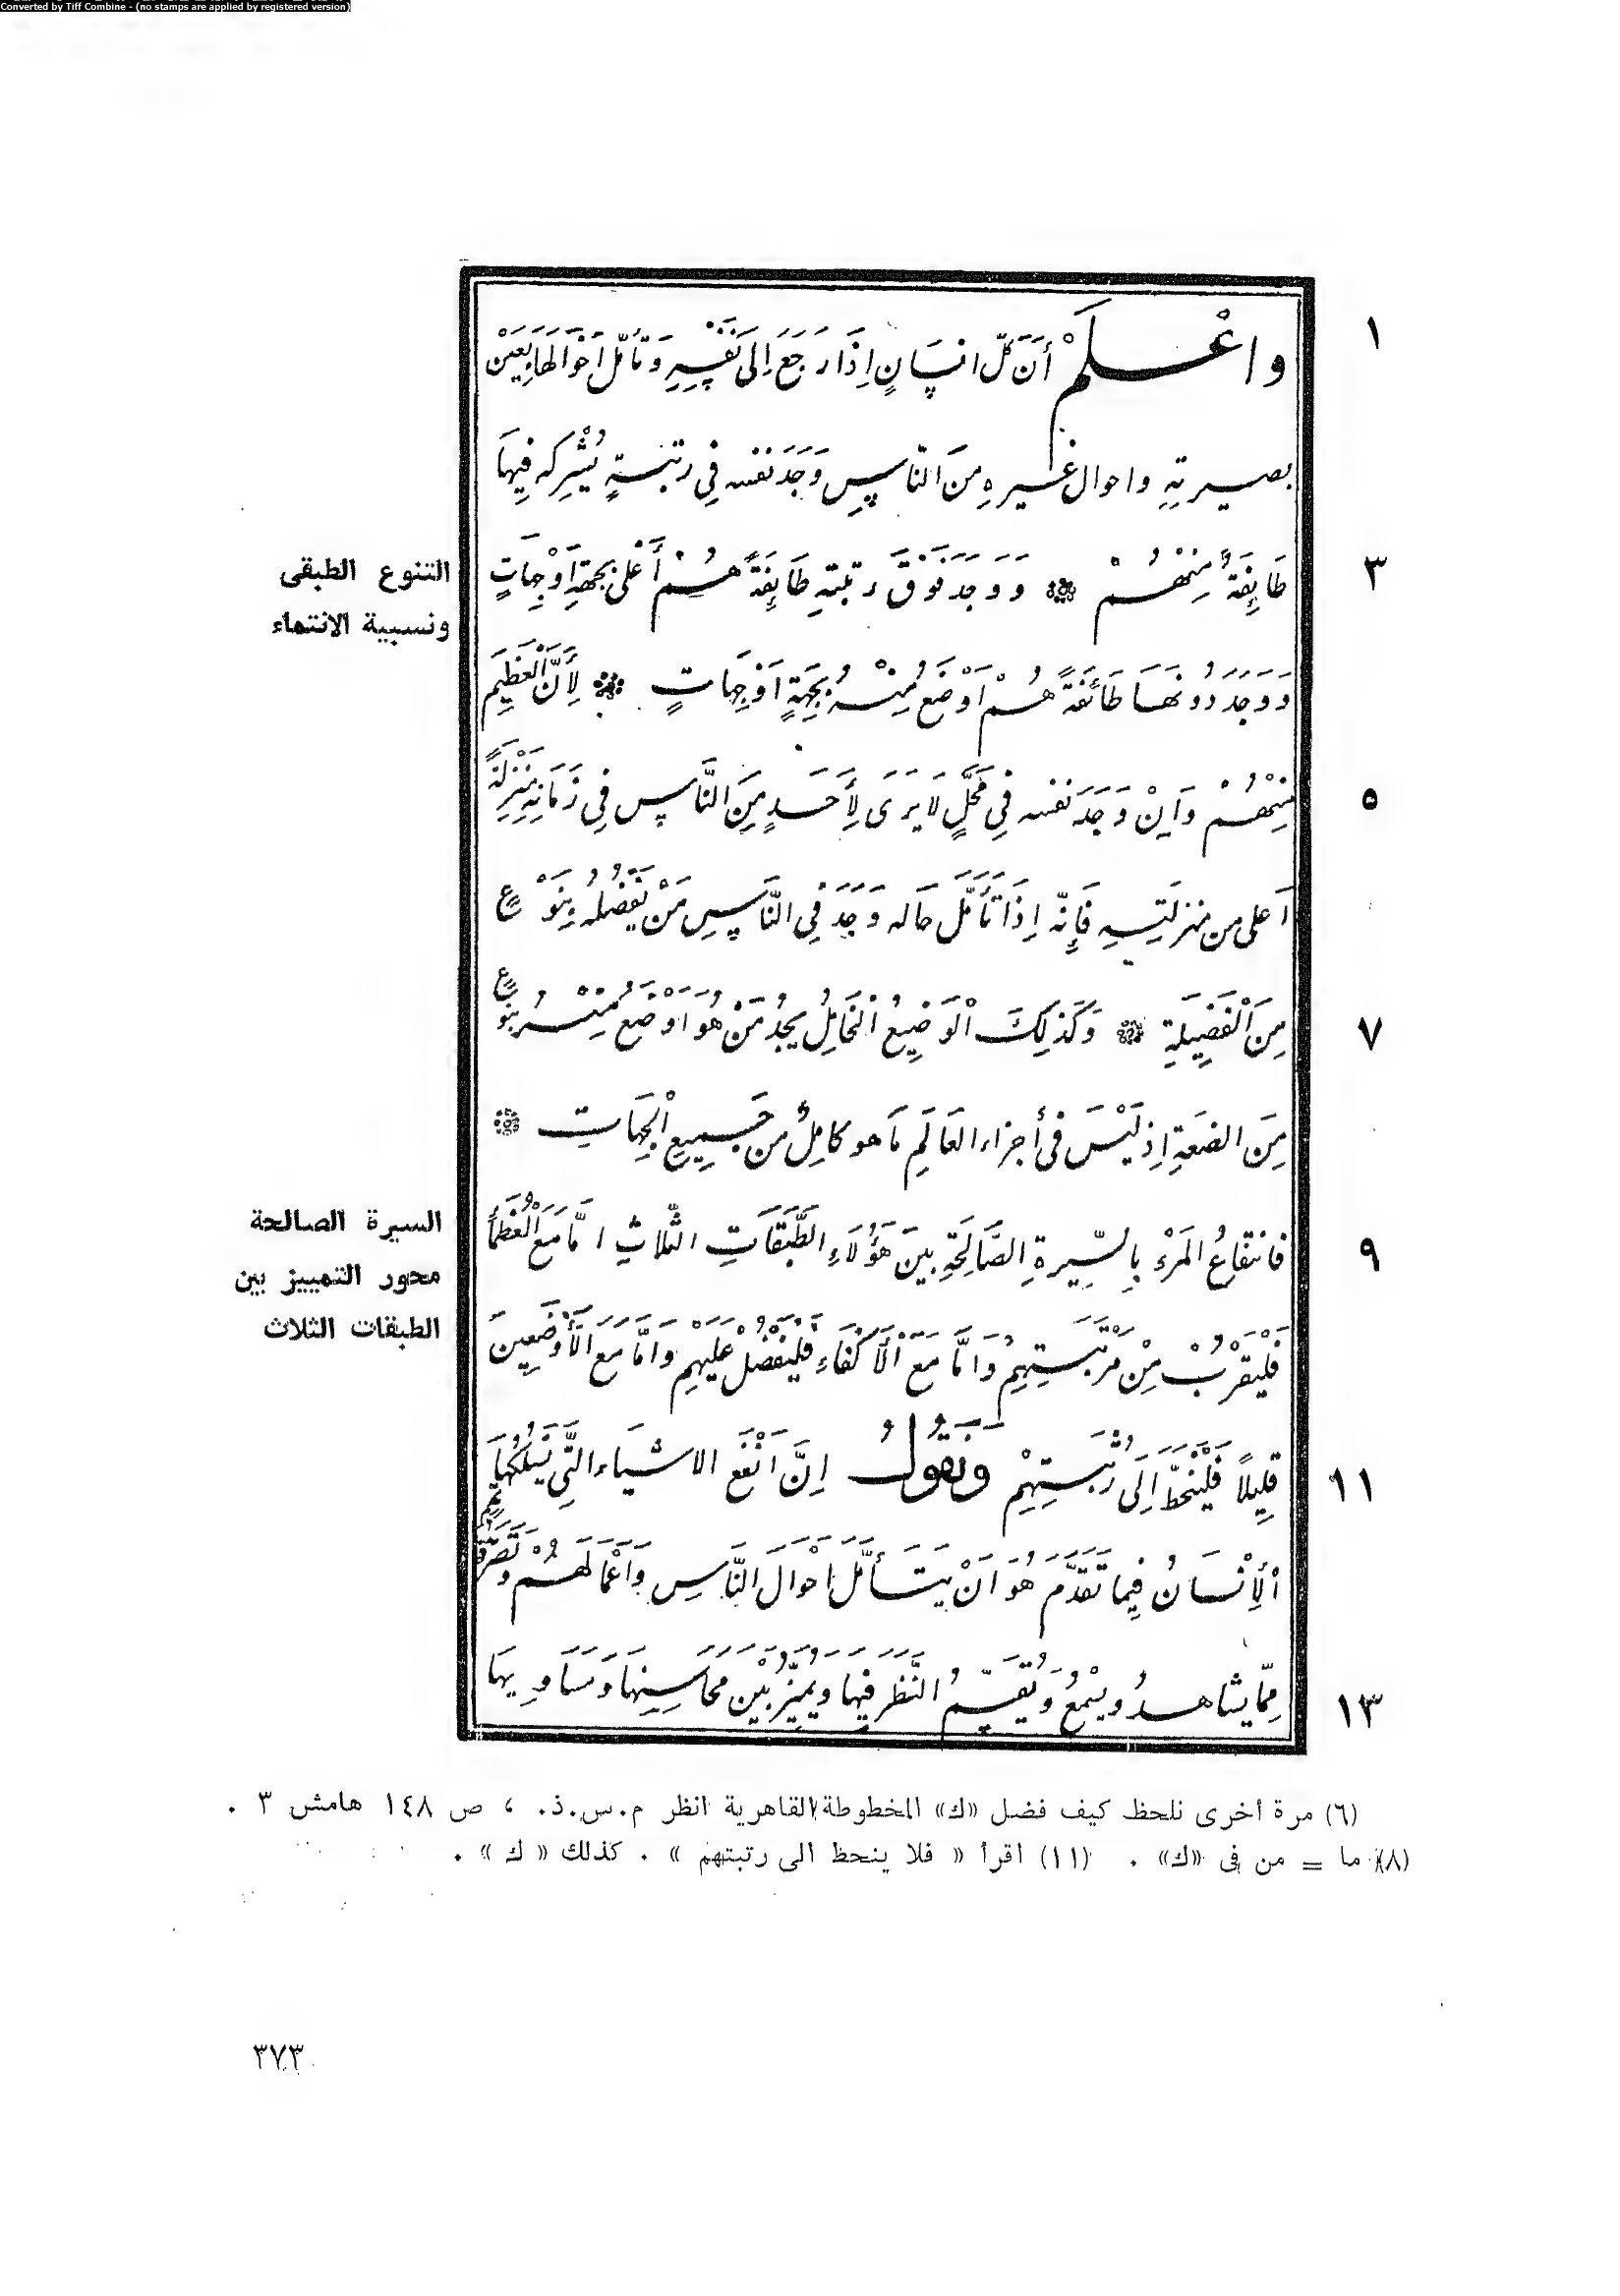 Converted by Tiff Combine - (no stamps are applied by registered version)
١
وَاعْلَمْ أَنَّ كُلَّ انسَانٍ إِذَا رَجَعَ إِلَى نَفْسِهِ وَتَأَمَّلَ أَحْوَالَهَا بِعَيْنِ
بصيرتِهِ واحوال غيرهِ مِنَ النَّاسِ وَجَدَ نفسه فِي رتبةٍ يُشْرِكه فِيهَا
٣
طَايِفَةٌ مِنْهُمْ ۞ وَوَجَدَ فَوْقَ رتبتهِ طَايِفَةً هُمْ أَعْلَى بجهةٍ أَوْ جِهَاتٍ
التنوع الطبقى
ونسبية الانتماء
وَوَجَدَ دُونَهَا طَائِفَةً هُمْ أَوْضَعُ مِنْهُ بِجِهَةٍ أَوْ جِهَاتٍ ۞ لِأَنَّ الْعَظِيمَ
٥
مِنْهُمْ وَإِنْ وَجَدَ نفسه فِي مَحَلٍّ لَا يَرَى لِأَحَدٍ مِنَ النَّاسِ فِي زَمَانِهِ مَنْزِلَةً
أَعلى من منزلتِهِ فَإِنَّه إِذَا تَأَمَّلَ حَاله وَجَدَ فِي النَّاسِ مَنْ يَفْضُلُهُ بِنَوْعٍ
٧
مِنَ الْفَضِيلَةِ ۞ وَكَذَلِكَ الْوَضِيعُ الْخَامِلُ يَجِدُ مَنْ هُوَ أَوْضَعُ مِنْهُ بِنَوْعٍ
مِنَ الضعَةِ إِذ لَيْسَ فى أجزاء العَالَمِ مَا هو كامِلٌ من جَمِيعِ الْجِهَاتِ ۞
٩
فانتفاعُ المَرْءِ بِالسِّيرةِ الصَّالِحَةِ بينَ هَؤُلَاءِ الطَّبَقَاتِ الثَّلاثِ امَّا مَعَ الْعُظَمَاءِ
السيرة الصالحة
محور التمييز بين
الطبقات الثلاث
فَلْيَقْرُبْ مِنْ مَرْتَبَتِهِمْ وَامَّا مَعَ الْأَكْفَاءِ فَلْيَفْضُلْ عَلَيْهِمْ وَامَّا مَعَ الْأَوْضَعِينَ
١١
قَلِيلًا فَلْيَنْحَطَّ إِلَى رُتْبَتِهِمْ وَنَقُولُ إِنَّ أَنْفَعَ الاشيَاء الَّتِي يَسْلُكُهَا
الْإِنْسَانُ فِيمَا تَقَدَّمَ هُوَ أَنْ يَتَأَمَّلَ أَحْوَالَ النَّاسِ وَأَعْمَالَهُمْ وَتَصَرُّفَاتِهِمْ
١٣
مِمَّا يشاهدُ ويسْمَعُ وَيُقَسِّمُ النَّظَرَ فِيهَا وَيُمَيِّزُ بَيْنَ مَحَاسِنِهَا وَمَسَاوِيهَا
(٦) مرة أخرى نلحظ كيف فضل «ك» المخطوطة القاهرية انظر م.س.ذ. ، ص ١٤٨ هامش ٣ .
(٨) ما = من فى «ك» . (١١) اقرأ « فلا ينحظ الى رتبتهم » . كذلك « ك » .
٣٧٣